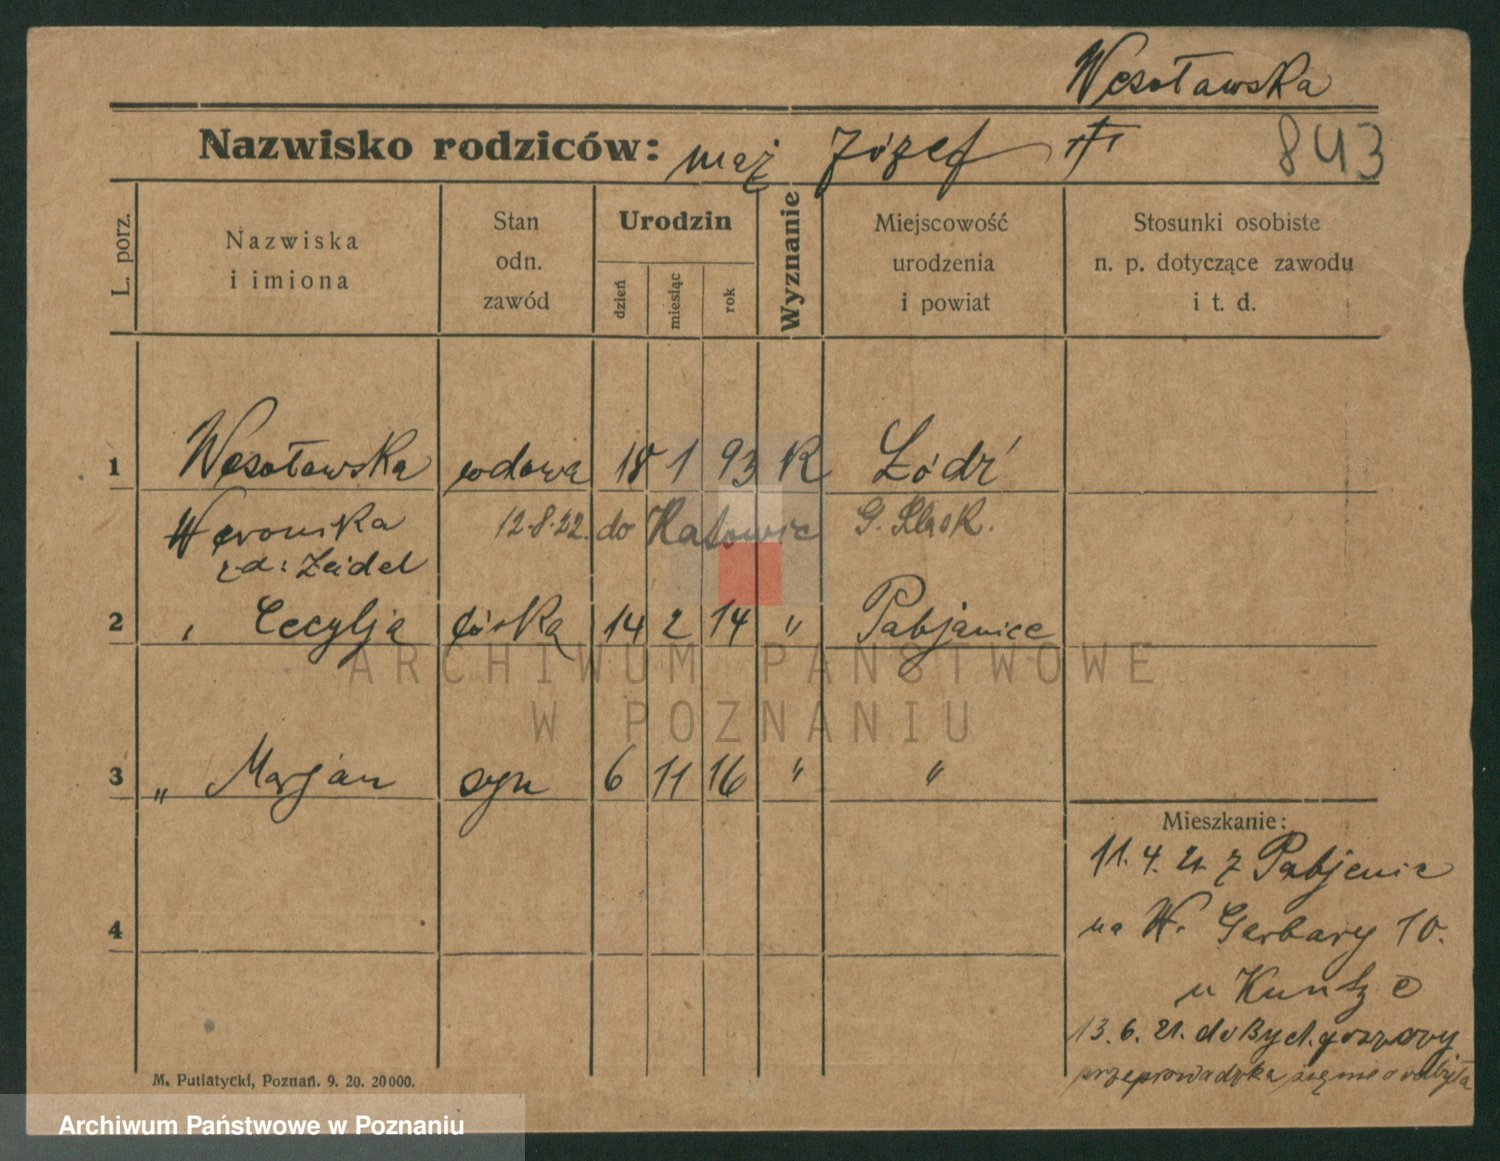 Wesołowska
Nazwisko rodziców: mąż Józef
843
L. porz.
Nazwiska
i imiona
Stan
odn.
zawód
Urodzin
dzień
miesiąc
rok
Wyznanie
Miejscowość
urodzenia
i powiat
Stosunki osobiste
n. p. dotyczące zawodu
i t. d.
1 Wesołowska wdowa 18 1 93 K Łódź
Weronika 12.8.22. do Katowic G. Sląsk.
zd: Zeidel
2 " Cecylja córka 14 2 14 " Pabjanice
ARCHIWUM PAŃSTWOWE
W POZNANIU
3 " Marjan syn 6 11 16 " "
4
Mieszkanie:
11. 4. 21 z Pabjanic
na W. Garbary 10.
u Kuntz
13. 6. 21. do Bydgoszczy
przeprowadzka się nie odbyła
M. Putiatycki, Poznań. 9. 20. 20000.
Archiwum Państwowe w Poznaniu